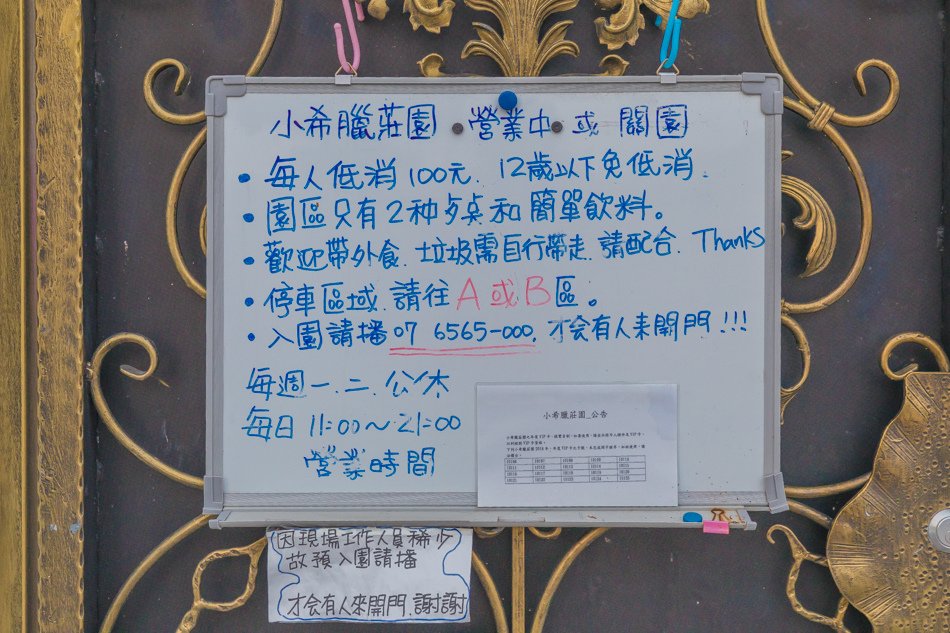 小希臘莊園 營業中 或 關園
• 每人低消100元. 12歲以下免低消.
• 園區只有2种 和簡單飲料。
• 歡迎帶外食. 垃圾需自行帶走. 請配合. Thanks
• 停車區域. 請往A或B區。
• 入園請播07 6565-000. 才会有人来開門!!!
每週一.二.公休
每日11:00～21:00
營業時間
小希臘莊園_公告
因現場工作人員稀少
故預入園請播
才会有人來開門.謝謝